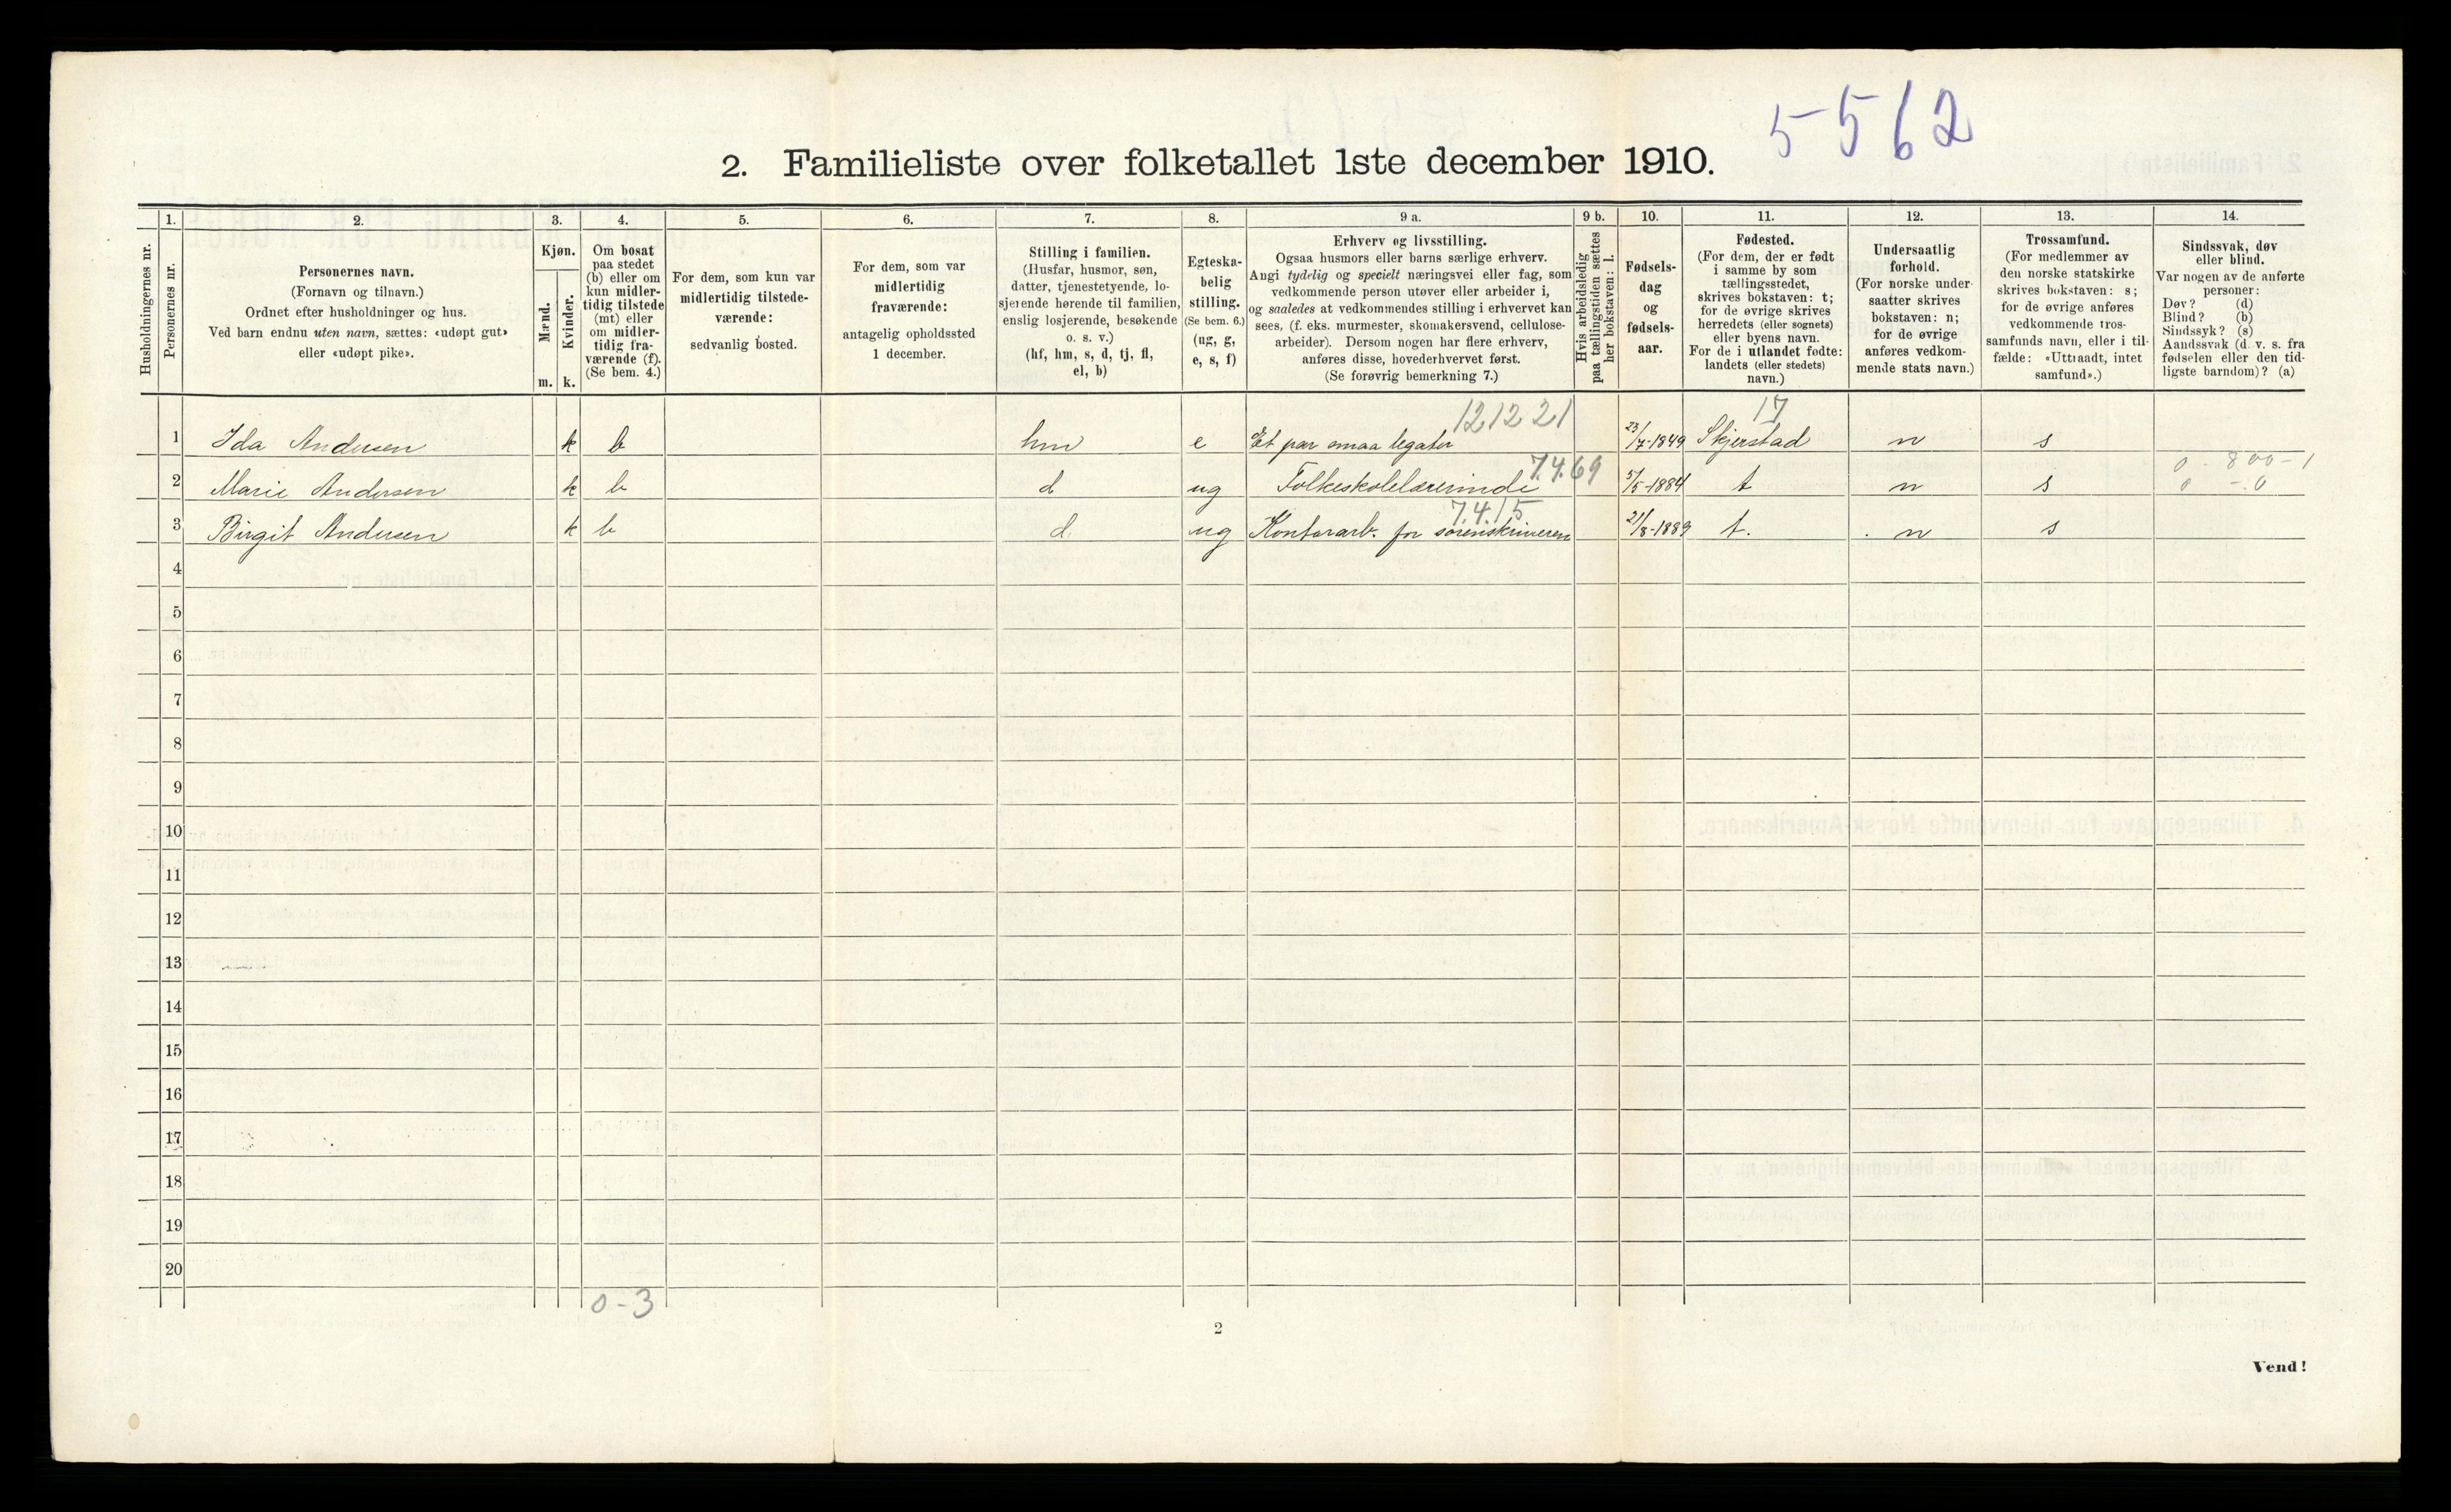 5562
2. Familieliste over folketallet 1ste december 1910.
Husholdningernes nr.
1.
Personernes nr.
2.
Personernes navn.
(Fornavn og tilnavn.)
Ordnet efter husholdninger og hus.
Ved barn endnu uten navn, sættes: «udøpt gut»
eller «udøpt pike».
3.
Kjøn.
Mænd.
Kvinder.
m. k.
4.
Om bosat
paa stedet
(b) eller om
kun midler-
tidig tilstede
(mt) eller
om midler-
tidig fra-
værende (f).
(Se bem. 4.)
5.
For dem, som kun var
midlertidig tilstede-
værende:
sedvanlig bosted.
6.
For dem, som var
midlertidig
fraværende:
antagelig opholdssted
1 december.
7.
Stilling i familien.
(Husfar, husmor, søn,
datter, tjenestetyende, lo-
sjerende hørende til familien,
enslig losjerende, besøkende
o. s. v.)
(hf, hm, s, d, tj, fl,
el, b)
8.
Egteska-
belig
stilling.
(Se bem. 6.)
(ug, g,
e, s, f)
9 a.
Erhverv og livsstilling.
Ogsaa husmors eller barns særlige erhverv.
Angi tydelig og specielt næringsvei eller fag, som
vedkommende person utøver eller arbeider i,
og saaledes at vedkommendes stilling i erhvervet kan
sees, (f. eks. murmester, skomakersvend, cellulose-
arbeider). Dersom nogen har flere erhverv,
anføres disse, hovederhvervet først.
(Se forøvrig bemerkning 7.)
9 b.
Hvis arbeidsledig
paa tællingstiden sættes
her bokstaven: l.
10.
Fødsels-
dag
og
fødsels-
aar.
11.
Fødested.
(For dem, der er født
i samme by som
tællingsstedet,
skrives bokstaven: t;
for de øvrige skrives
herredets (eller sognets)
eller byens navn.
For de i utlandet fødte:
landets (eller stedets)
navn.)
12.
Undersaatlig
forhold.
(For norske under-
saatter skrives
bokstaven: n;
for de øvrige
anføres vedkom-
mende stats navn.)
13.
Trossamfund.
(For medlemmer av
den norske statskirke
skrives bokstaven: s;
for de øvrige anføres
vedkommende tros-
samfunds navn, eller i til-
fælde: «Uttraadt, intet
samfund».)
14.
Sindssvak, døv
eller blind.
Var nogen av de anførte
personer:
Døv? (d)
Blind? (b)
Sindssyk? (s)
Aandssvak (d. v. s. fra
fødselen eller den tid-
ligste barndom)? (a)
121221 17
1 Ida Andersen k b hm e Et par smaa legater 23/7-1849 Skjerstad n s
7.4.69 0 - 800 - 1
2 Marie Andersen k b d ug Folkeskolelærerinde 5/5-1884 t n s 0 - 0
7.4.15
3 Birgit Andersen k b d. ug Kontorarb. for sorenskriveren 21/8-1889 t. n s
4
5
6
7
8
9
10
11
12
13
14
15
16
17
18
19
20
0-3
2
Vend!